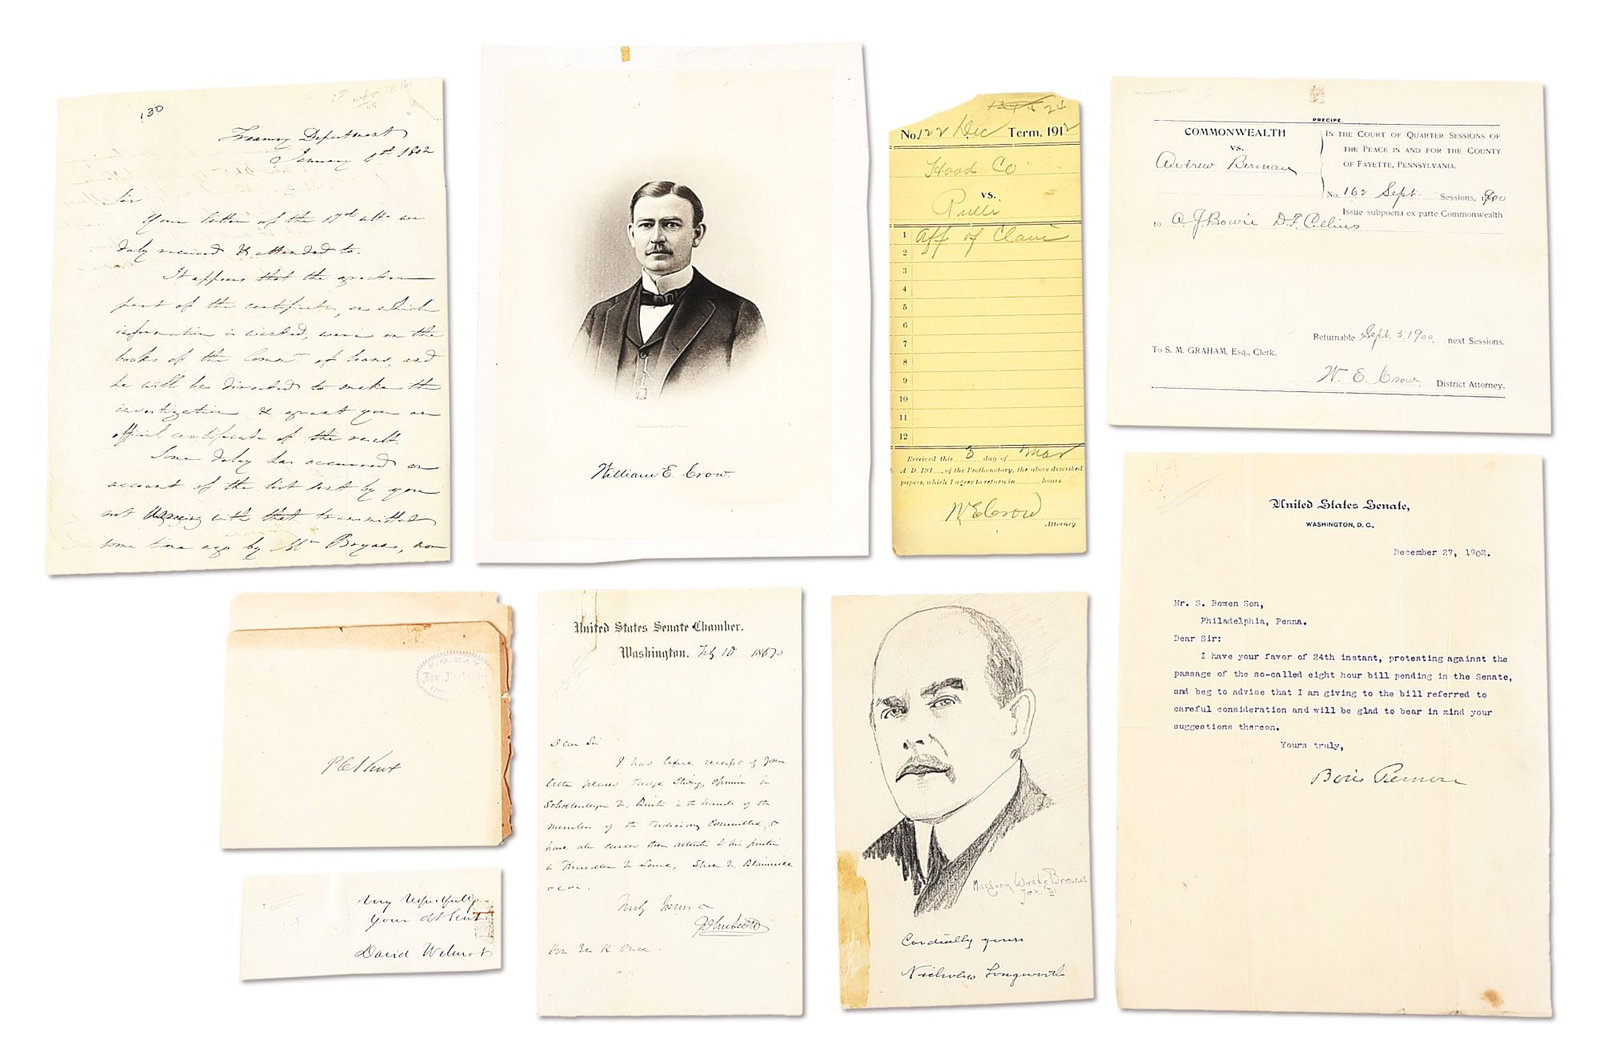 130
Treasury Department
January 6th 1802
Sir
Your letter of the 17th ulto was
duly received & attended to.
It appears that the
part of the certificates, on which
information is wished, were on the
books of the Comr of loans, and
he will be directed to make the
investigation & grant you an
official certificate of the result.
Some delay has occurred on
account of the list sent by you
not agreeing with that transmitted
some time ago by Mr Bryan, now
William E. Crow.
No. 122 Dec Term, 1912
Hood Co
vs.
1 Aff of Claim
2
3
4
5
6
7
8
9
10
11
12
Received this 3 day of Mar
A. D. 191 , of the Prothonotary, the above described
papers, which I agree to return in hours
W E Crow
Attorney.
PRECIPE.
COMMONWEALTH
vs.
Andrew Berman
IN THE COURT OF QUARTER SESSIONS OF
THE PEACE IN AND FOR THE COUNTY
OF FAYETTE, PENNSYLVANIA.
No. 162 Sept. Sessions, 1900
Issue subpoena ex parte Commonwealth
to A. J. Bowie D. F. Collins
Returnable Sept. 3, 1900 next Sessions.
To S. M. GRAHAM, Esq., Clerk.
W. E. Crow District Attorney.
P C Knox
very respectfully
your obt Servt
David Wilmot
United States Senate Chamber.
Washington, Feby 10 1870
Dear Sir
I have receipt of your
letter Judge Strong Opinion in
in the hands of the
members of the Judiciary Committee, &
have also their attention to
Truly Yours
Marjory Brown
Jan.
Cordially yours
Nicholas Longworth
United States Senate,
WASHINGTON, D. C.,
December 27, 1902.
Mr. S. Bowen Son,
Philadelphia, Penna.
Dear Sir:
I have your favor of 24th instant, protesting against the
passage of the so-called eight hour bill pending in the Senate,
and beg to advise that I am giving to the bill referred to
careful consideration and will be glad to bear in mind your
suggestions thereon.
Yours truly,
Boies Penrose